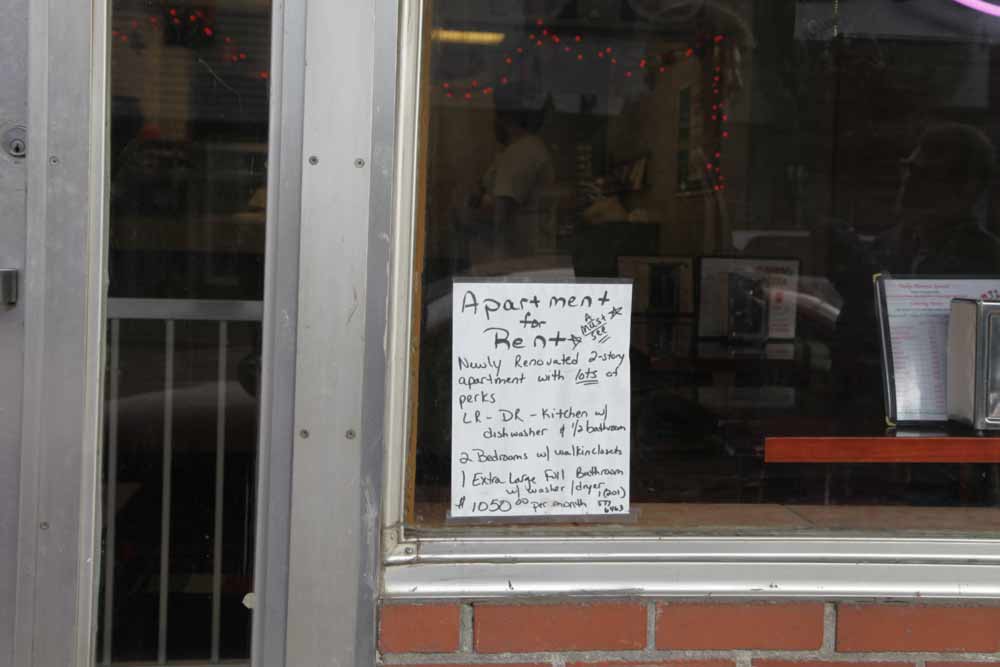 Apartment
for
Rent
A
Must
See
Newly Renovated 2-story
apartment with lots of
perks
LR - DR - Kitchen w/
dishwasher & 1/2 bathroom
2 Bedrooms w/ walkin closets
1 Extra Large Full Bathroom
w/ washer/dryer
$1050.00 per month
1(201)